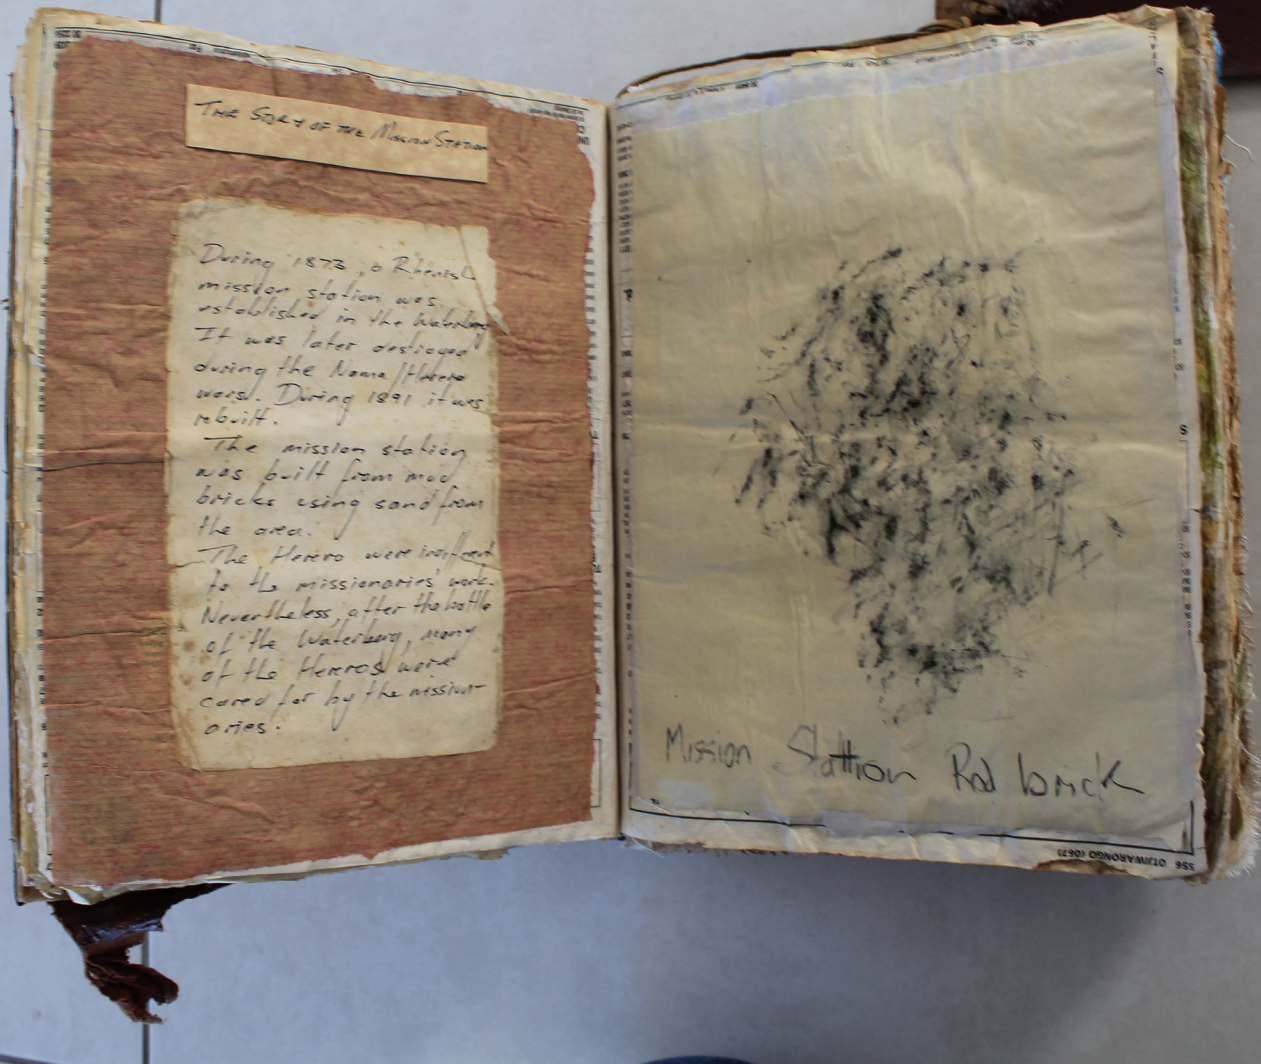 THE STORY OF THE MISSION STATION
During 1873, a Rhenish
mission station was
established in the Waterberg
It was later destroyed
during the Nama/Herero
wars. During 1891 it was
rebuilt.
The mission station
was built from mud
bricks using sand from
the area.
The Herero were indifferent
to the missionaries' work.
Nevertheless, after the battle
of the Waterberg, many
of the Hereros were
cared for by the mission-
aries.
Mission Stattion Rod brick
556 OTJIWARONGO (067)